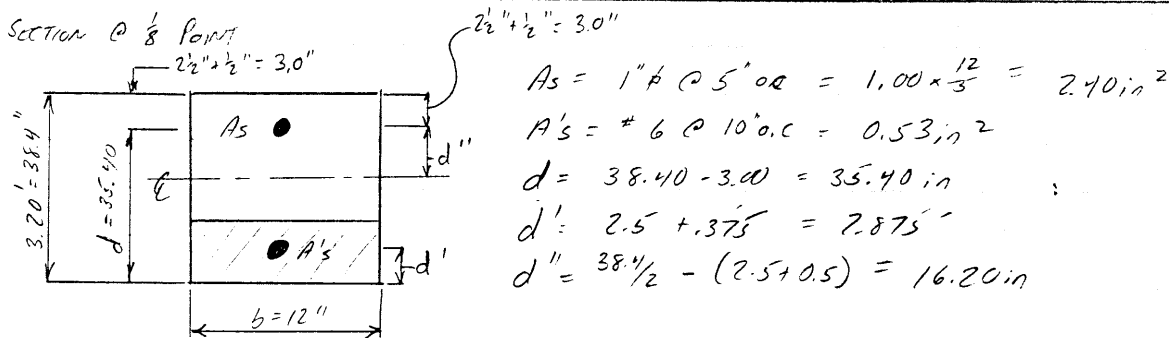 SECTION @ 1/8 POINT
2 1/2" + 1/2" = 3.0"
2 1/2" + 1/2" = 3.0"
3.20' = 38.4"
d = 35.40
℄
As
A's
d"
d'
b = 12"
As = 1"ϕ @ 5" oc = 1.00 x 12/5 = 2.40 in²
A's = #6 @ 10" o.c = 0.53 in²
d = 38.40 - 3.00 = 35.40 in
d' = 2.5 + .375 = 2.875
d" = 38.4/2 - (2.5+0.5) = 16.20 in